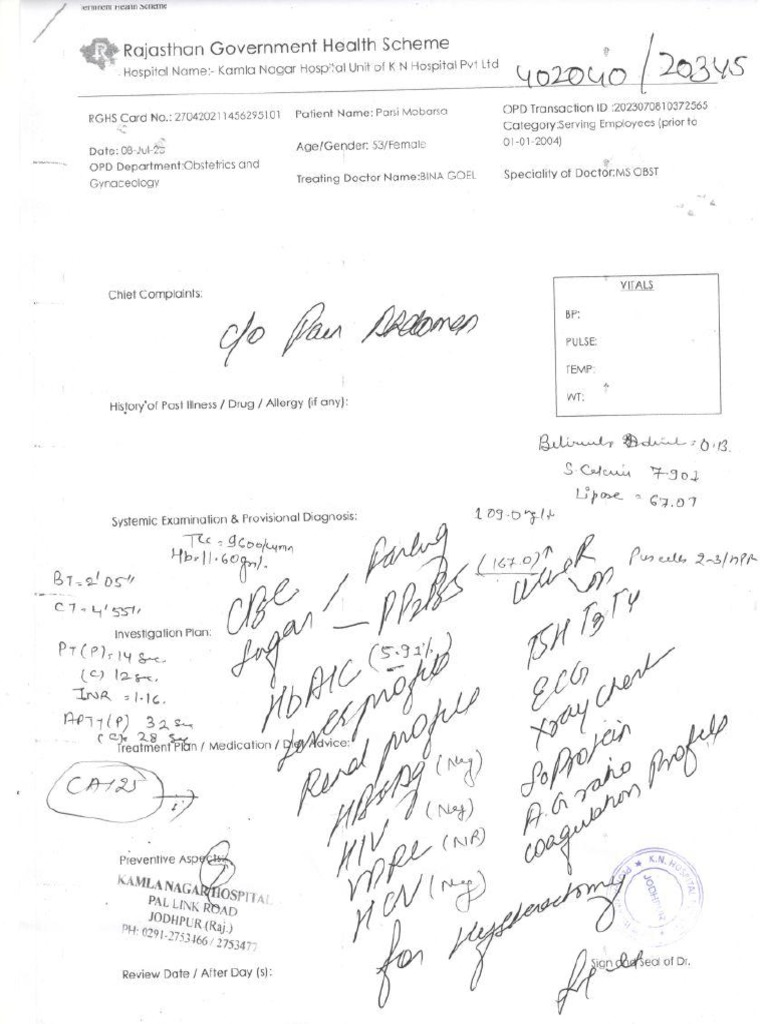 ernment Health Scheme
Rajasthan Government Health Scheme
Hospital Name:- Kamla Nagar Hospital Unit of K N Hospital Pvt Ltd
402040/20345
RGHS Card No.: 270420211456295101
Patient Name: Parsi Mobarsa
OPD Transaction ID :2023070810372565
Category:Serving Employees (prior to
01-01-2004)
Date: 08-Jul-23
Age/Gender: 53/Female
OPD Department:Obstetrics and
Gynaceology
Treating Doctor Name:BINA GOEL
Speciality of Doctor:MS OBST
Chief Complaints:
c/o Pain Abdomen
VITALS
BP:
PULSE:
TEMP:
WT:
History of Past Illness / Drug / Allergy (if any):
= 0.13.
S. Calcium 7.90↓
Lipase = 67.07
Systemic Examination & Provisional Diagnosis:
109.0
TLC = 9600/cumm
Hb = 11.60gm/.
BT = 2'05"
CT = 4'55"
CBC
Sugar / Fasting
— PP2BS (167.0)↑
Urine R
Puscells 2-3/HPF
Investigation Plan:
PT (P) = 14 Sec.
(C) 12 Sec.
INR = 1.16.
APTT (P) 32 Sec
(C) = 28 Sec
HbA1C (5.91%)
Liver profile
Renal profile
HBsAg (Neg)
HIV (Neg)
VDRL (NR)
HCV (Neg)
TSH T3 T4
ECG
Xray Chest
S. Protein
A.G ratio
coagulation Profile
Treatment Plan / Medication / Diet Advice:
CA125
for Hysterectomy
Preventive Aspects:
KAMLA NAGAR HOSPITAL
PAL LINK ROAD
JODHPUR (Raj.)
PH: 0291-2753466 / 2753477
K.N. HOSPITAL
JODHPUR
Review Date / After Day (s):
Sign and Seal of Dr.